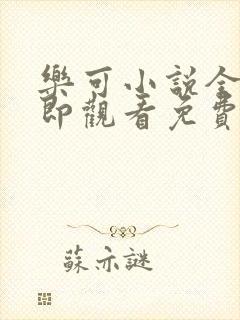 樂可小說全
即觀看免費
蘇亦謎